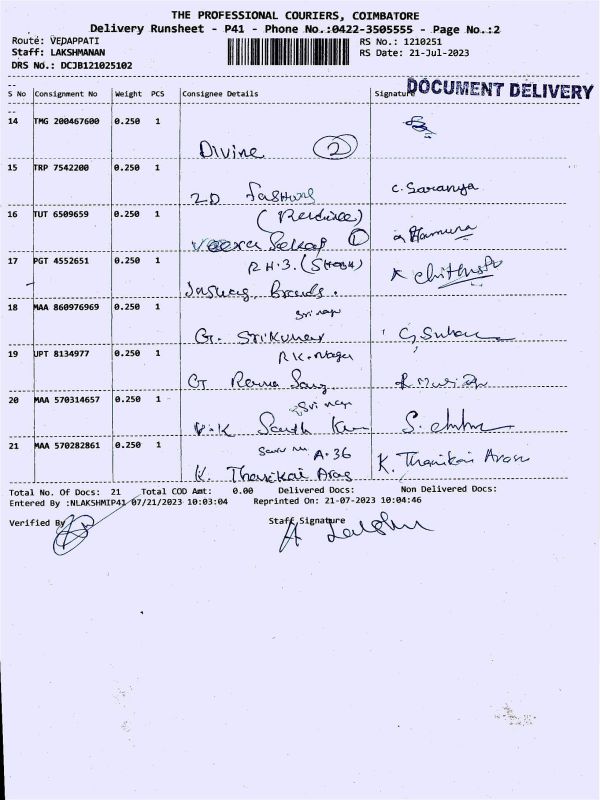 THE PROFESSIONAL COURIERS, COIMBATORE
Delivery Runsheet - P41 - Phone No.:0422-3505555 - Page No.:2
Route: VEDAPPATI
RS No.: 1210251
Staff: LAKSHMANAN
RS Date: 21-Jul-2023
DRS No.: DCJB121025102
DOCUMENT DELIVERY
S No Consignment No Weight PCS Consignee Details Signature
14 TMG 200467600 0.250 1
Divine 2
15 TRP 7542200 0.250 1
2D
C. Saranya
16 TUT 6509659 0.250 1
1
17 PGT 4552651 0.250 1
R.H.3.
18 MAA 860976969 0.250 1
Sri nagar
G. Srikumar
19 JPT 8134977 0.250 1
R.K. Nagar
G
20 MAA 570314657 0.250 1
Sri nagar
21 MAA 570282861 0.250 1
A-36
K. Thanikai Aras K. Thanikai Arasu
Total No. Of Docs: 21 Total COD Amt: 0.00 Delivered Docs: Non Delivered Docs:
Entered By :NLAKSHMIP41 07/21/2023 10:03:04 Reprinted On: 21-07-2023 10:04:46
Verified By Staff Signature